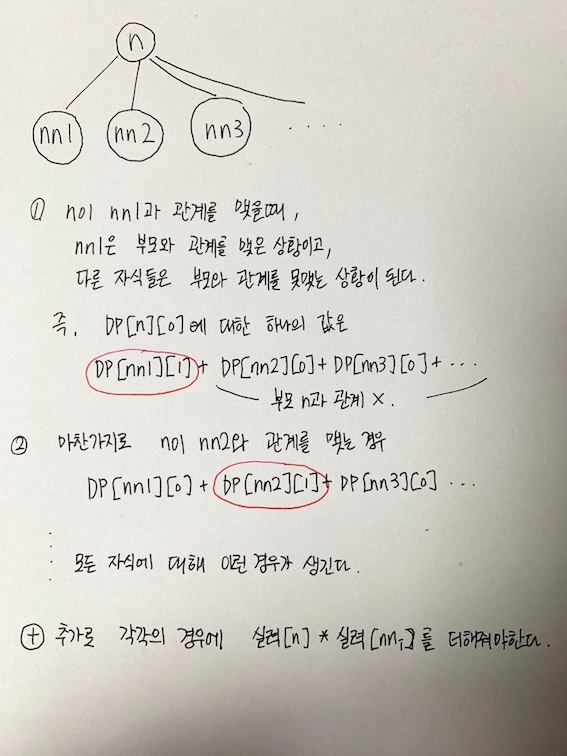 n
nn1 nn2 nn3 ....
① n이 nn1과 관계를 맺을때,
nn1은 부모와 관계를 맺은 상황이고,
다른 자식들은 부모와 관계를 못맺는 상황이 된다.
즉, DP[n][0]에 대한 하나의 값은
DP[nn1][1] + DP[nn2][0] + DP[nn3][0] + ...
부모 n과 관계 X.
② 마찬가지로 n이 nn2와 관계를 맺는 경우
DP[nn1][0] + DP[nn2][1] + DP[nn3][0] ...
모든 자식에 대해 이런 경우가 생긴다.
⊕ 추가로 각각의 경우에 실력[n] * 실력[nn_T]를 더해줘야한다.